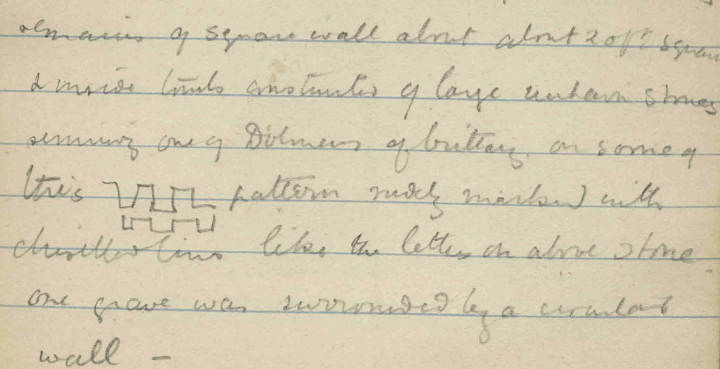 remains of square wall about about 20ft square
& inside tombs constructed of large unhewn stones
reminding one of Dolmens of brittany. on some of
this pattern rudely marked with
chiselled lines like the letters on above stone
one grave was surrounded by a circular
wall —